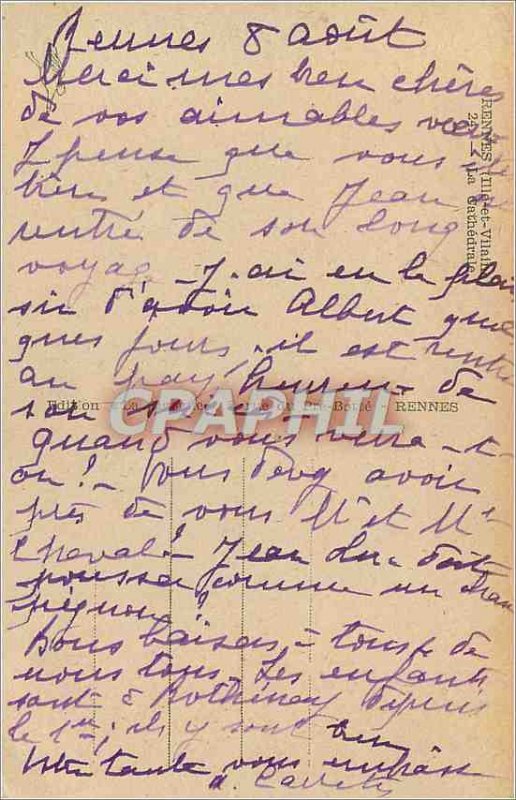 Rennes 8 août
Merci mes bien chères
de vos aimables vœux
J pense que vous
bien et que Jean
rentré de son long
voyage - J'ai eu le plai
sir d'avoir Albert quel
ques jours, il est rentré
au pays heureux de
son
quand vous verra-t-
on! - Vous devez avoir
près de vous Mr et Me
Jean Luc doit
pousser comme un cham
pignon?
Bons baisers - tous de
nous tous. Les enfants
sont à depuis
le 1er; ils y sont bien
Votre tante vous embrasse
RENNES (Ille-et-Vilaine)
24 - La Cathédrale
Edition - RENNES
CPAPHIL